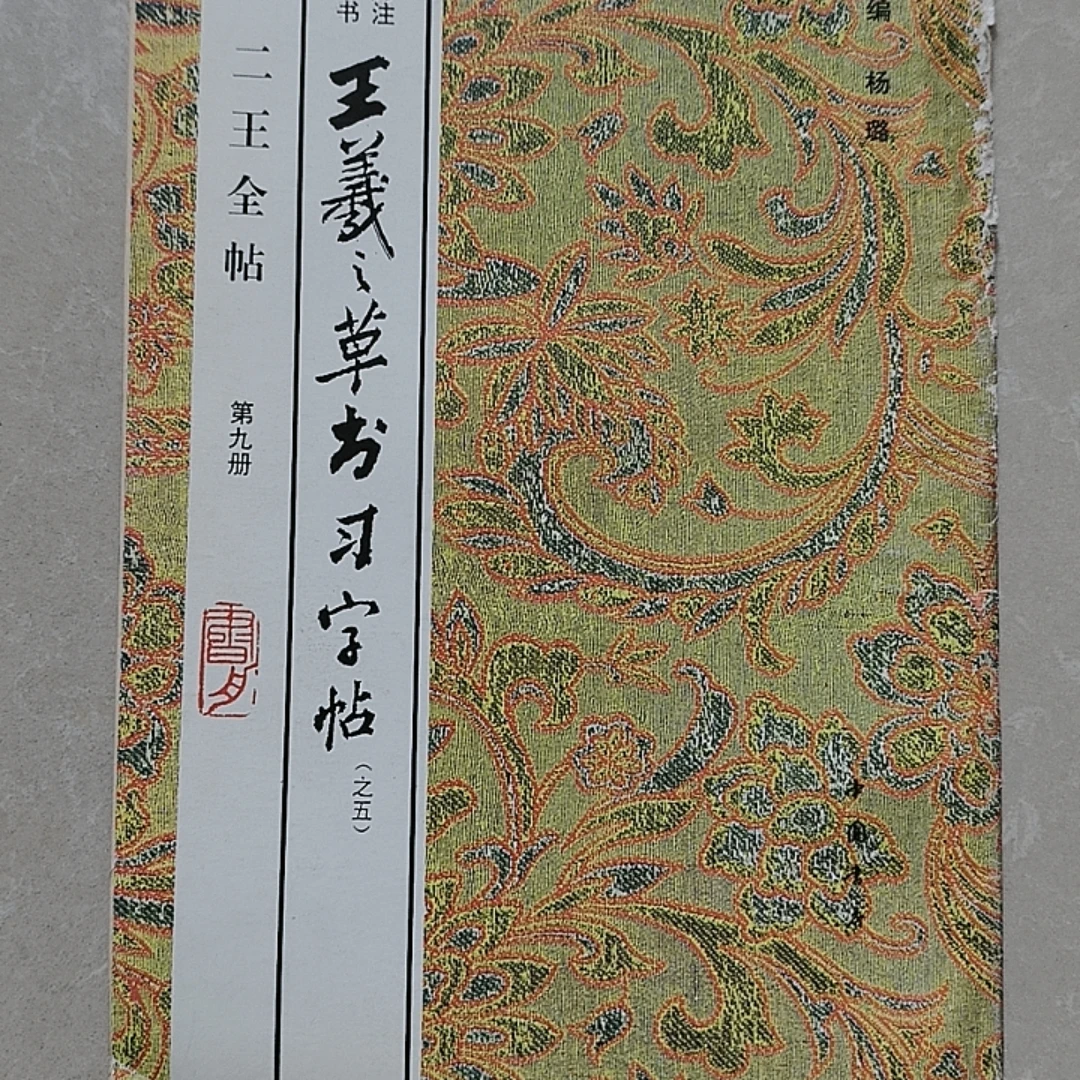 编 杨璐
书注
王羲之草书习字帖
(之五)
二王全帖
第九册